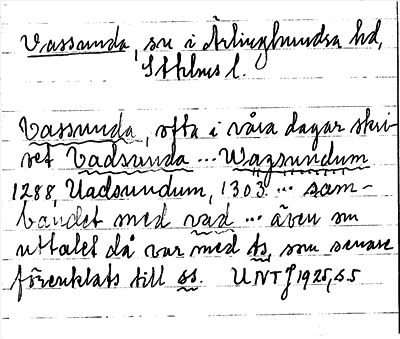 Vassunda, sn i Ärlinghundra hd,
Sthlms l.
Vassunda, ofta i våra dagar skri-
vet Vadsunda ... Wazsundum
1288, Uadsundum, 1303 ... sam-
bandet med vad ... även om
uttalet då var med ts, som senare
förenklats till ss. UNT J 1925, S. 5